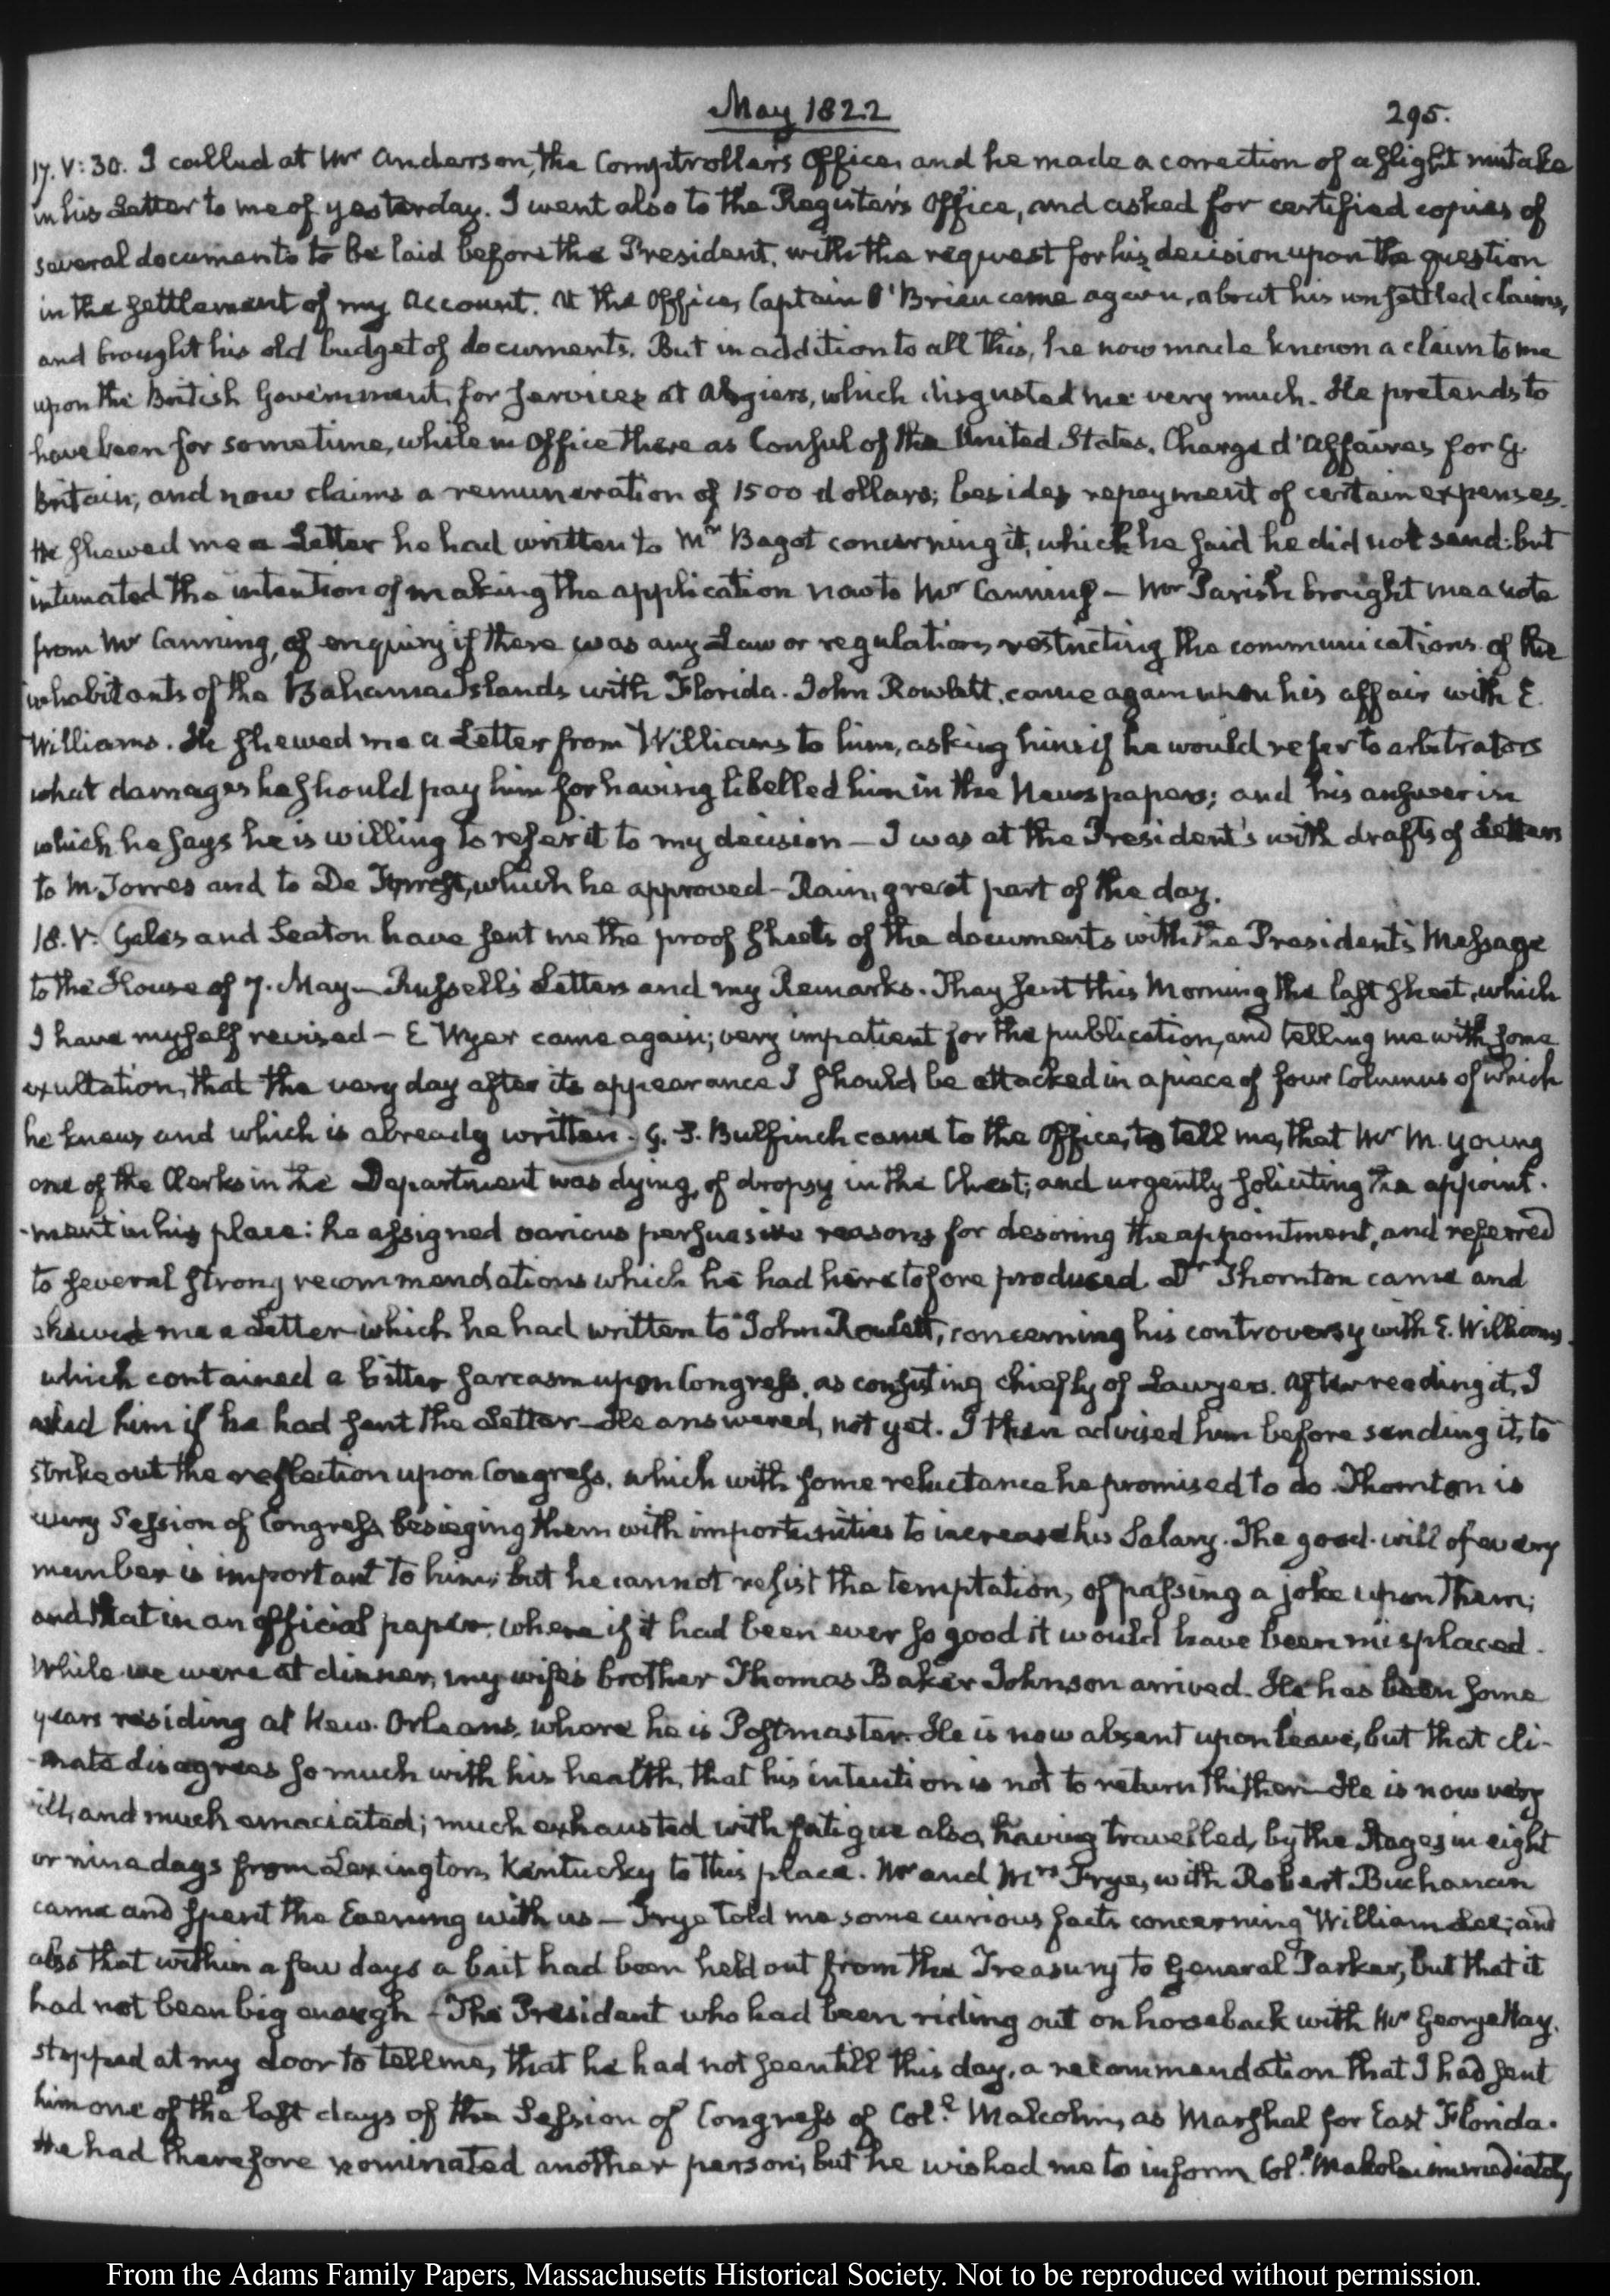 May 1822
295.
17. V: 30. I called at Mr Anderson, the Comptroller's Office, and he made a correction of a slight mistake
in his Letter to me of yesterday. I went also to the Register's Office, and asked for certified copies of
several documents to be laid before the President, with the request for his decision upon the question
in the settlement of my Account. At the Office, Captain O'Brien came again, about his unsettled claims,
and brought his old budget of documents. But in addition to all this, he now made known a claim to me
upon the British Government, for services at Algiers, which disgusted me very much. He pretends to
have been for sometime, while in Office there as Consul of the United States, Chargé d'Affaires for G.
Britain; and now claims a remuneration of 1500 dollars; besides repayment of certain expenses.
He shewed me a Letter he had written to Mr Bagot concerning it, which he said he did not send: but
intimated the intention of making the application now to Mr Canning — Mr Parish brought me a note
from Mr Canning, of enquiry if there was any Law or regulation, restricting the communications of the
inhabitants of the Bahama Islands with Florida. John Rowlett, came again upon his affair with E.
Williams. He shewed me a Letter from Williams to him, asking him if he would refer to arbitrators
what damages he should pay him for having libelled him in the Newspapers; and his answer in
which he says he is willing to refer it to my decision — I was at the President's with drafts of Letters
to M. Torres and to De Forrest, which he approved — Rain, great part of the day.
18. V: Gales and Seaton have sent me the proof sheets of the documents with the President's Message
to the House of 7. May — Russell's Letters and my Remarks. They sent this Morning the last sheet, which
I have myself revised — E Wyer came again; very impatient for the publication, and telling me with some
exultation, that the very day after its appearance I should be attacked in a piece of four Columns of which
he knew, and which is already written. G. S. Bulfinch came to the Office, to tell me, that Mr M. Young
one of the Clerks in the Department was dying, of dropsy in the Chest; and urgently soliciting the appoint-
-ment in his place: he assigned various persuasive reasons for desiring the appointment, and referred
to several strong recommendations which he had heretofore produced. Dr Thornton came and
shewed me a Letter which he had written to John Rowlett, concerning his controversy with E. Williams.
which contained a bitter sarcasm upon Congress, as consisting chiefly of Lawyers. After reading it, I
asked him if he had sent the Letter — He answered, not yet. I then advised him before sending it, to
strike out the reflection upon Congress, which with some reluctance he promised to do. Thornton is
every Session of Congress besieging them with importunities to increase his Salary. The good-will of every
member is important to him; but he cannot resist the temptation, of passing a joke upon them;
and that in an official paper, where if it had been ever so good it would have been misplaced.
While we were at dinner, my wife's brother Thomas Baker Johnson arrived. He has been some
years residing at New-Orleans, where he is Postmaster. He is now absent upon leave, but that cli-
-mate disagrees so much with his health, that his intention is not to return thither — He is now very
ill, and much emaciated; much exhausted with fatigue also, having travelled, by the Stages in eight
or nine days from Lexington, Kentucky to this place. Mr and Mrs Frye, with Robert Buchanan
came and spent the Evening with us — Frye told me some curious facts concerning William Lee; and
also that within a few days a bait had been held out from the Treasury to General Parker, but that it
had not been big enough — The President who had been riding out on horseback with Mr George Hay,
stopped at my door to tell me, that he had not seen till this day, a recommendation that I had sent
him one of the last days of the Session of Congress of Coll. Malcolm, as Marshal for East Florida.
He had therefore nominated another person; but he wished me to inform Coll. Malcolm immediately
From the Adams Family Papers, Massachusetts Historical Society. Not to be reproduced without permission.